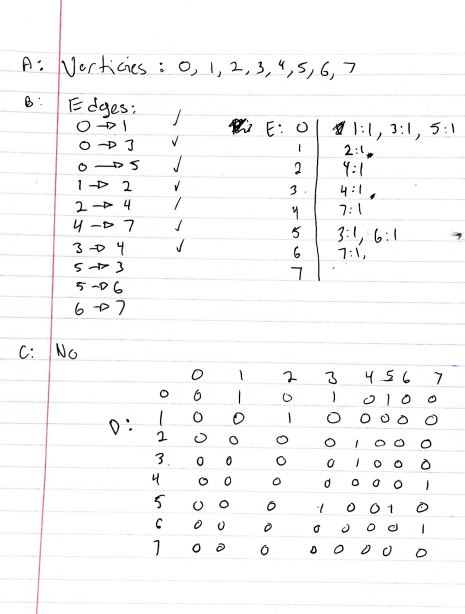 A: Verticies: 0, 1, 2, 3, 4, 5, 6, 7
B: Edges:
0 → 1 ✓
0 → 3 ✓
0 → 5 ✓
1 → 2 ✓
2 → 4 ✓
4 → 7 ✓
3 → 4 ✓
5 → 3
5 → 6
6 → 7
E: 0 | 1:1, 3:1, 5:1
1 | 2:1,
2 | 4:1
3 | 4:1,
4 | 7:1
5 | 3:1, 6:1
6 | 7:1,
7 |
C: No
D:
0 1 2 3 4 5 6 7
0 0 1 0 1 0 1 0 0
1 0 0 1 0 0 0 0 0
2 0 0 0 0 1 0 0 0
3 0 0 0 0 1 0 0 0
4 0 0 0 0 0 0 0 1
5 0 0 0 1 0 0 1 0
6 0 0 0 0 0 0 0 1
7 0 0 0 0 0 0 0 0